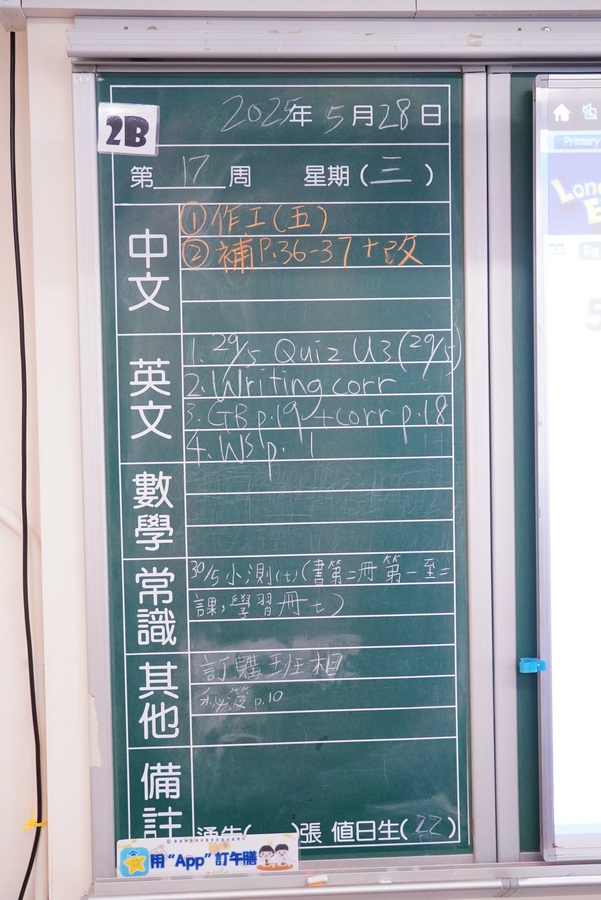 2B
2025年5月28日
第17周 星期(三)
中文
①作工(五)
②補P.36-37+改
英文
1. 29/5 Quiz U3(29/5)
2. Writing corr
3. GB p.19 + corr p.18
4. WS p. 1
數學
常識
30/5小測(七)(書第二冊第一至二
課,學習冊七)
其他
訂購班相
p.10
備註
通告( )張 值日生(22)
用“App”訂午膳
Primary